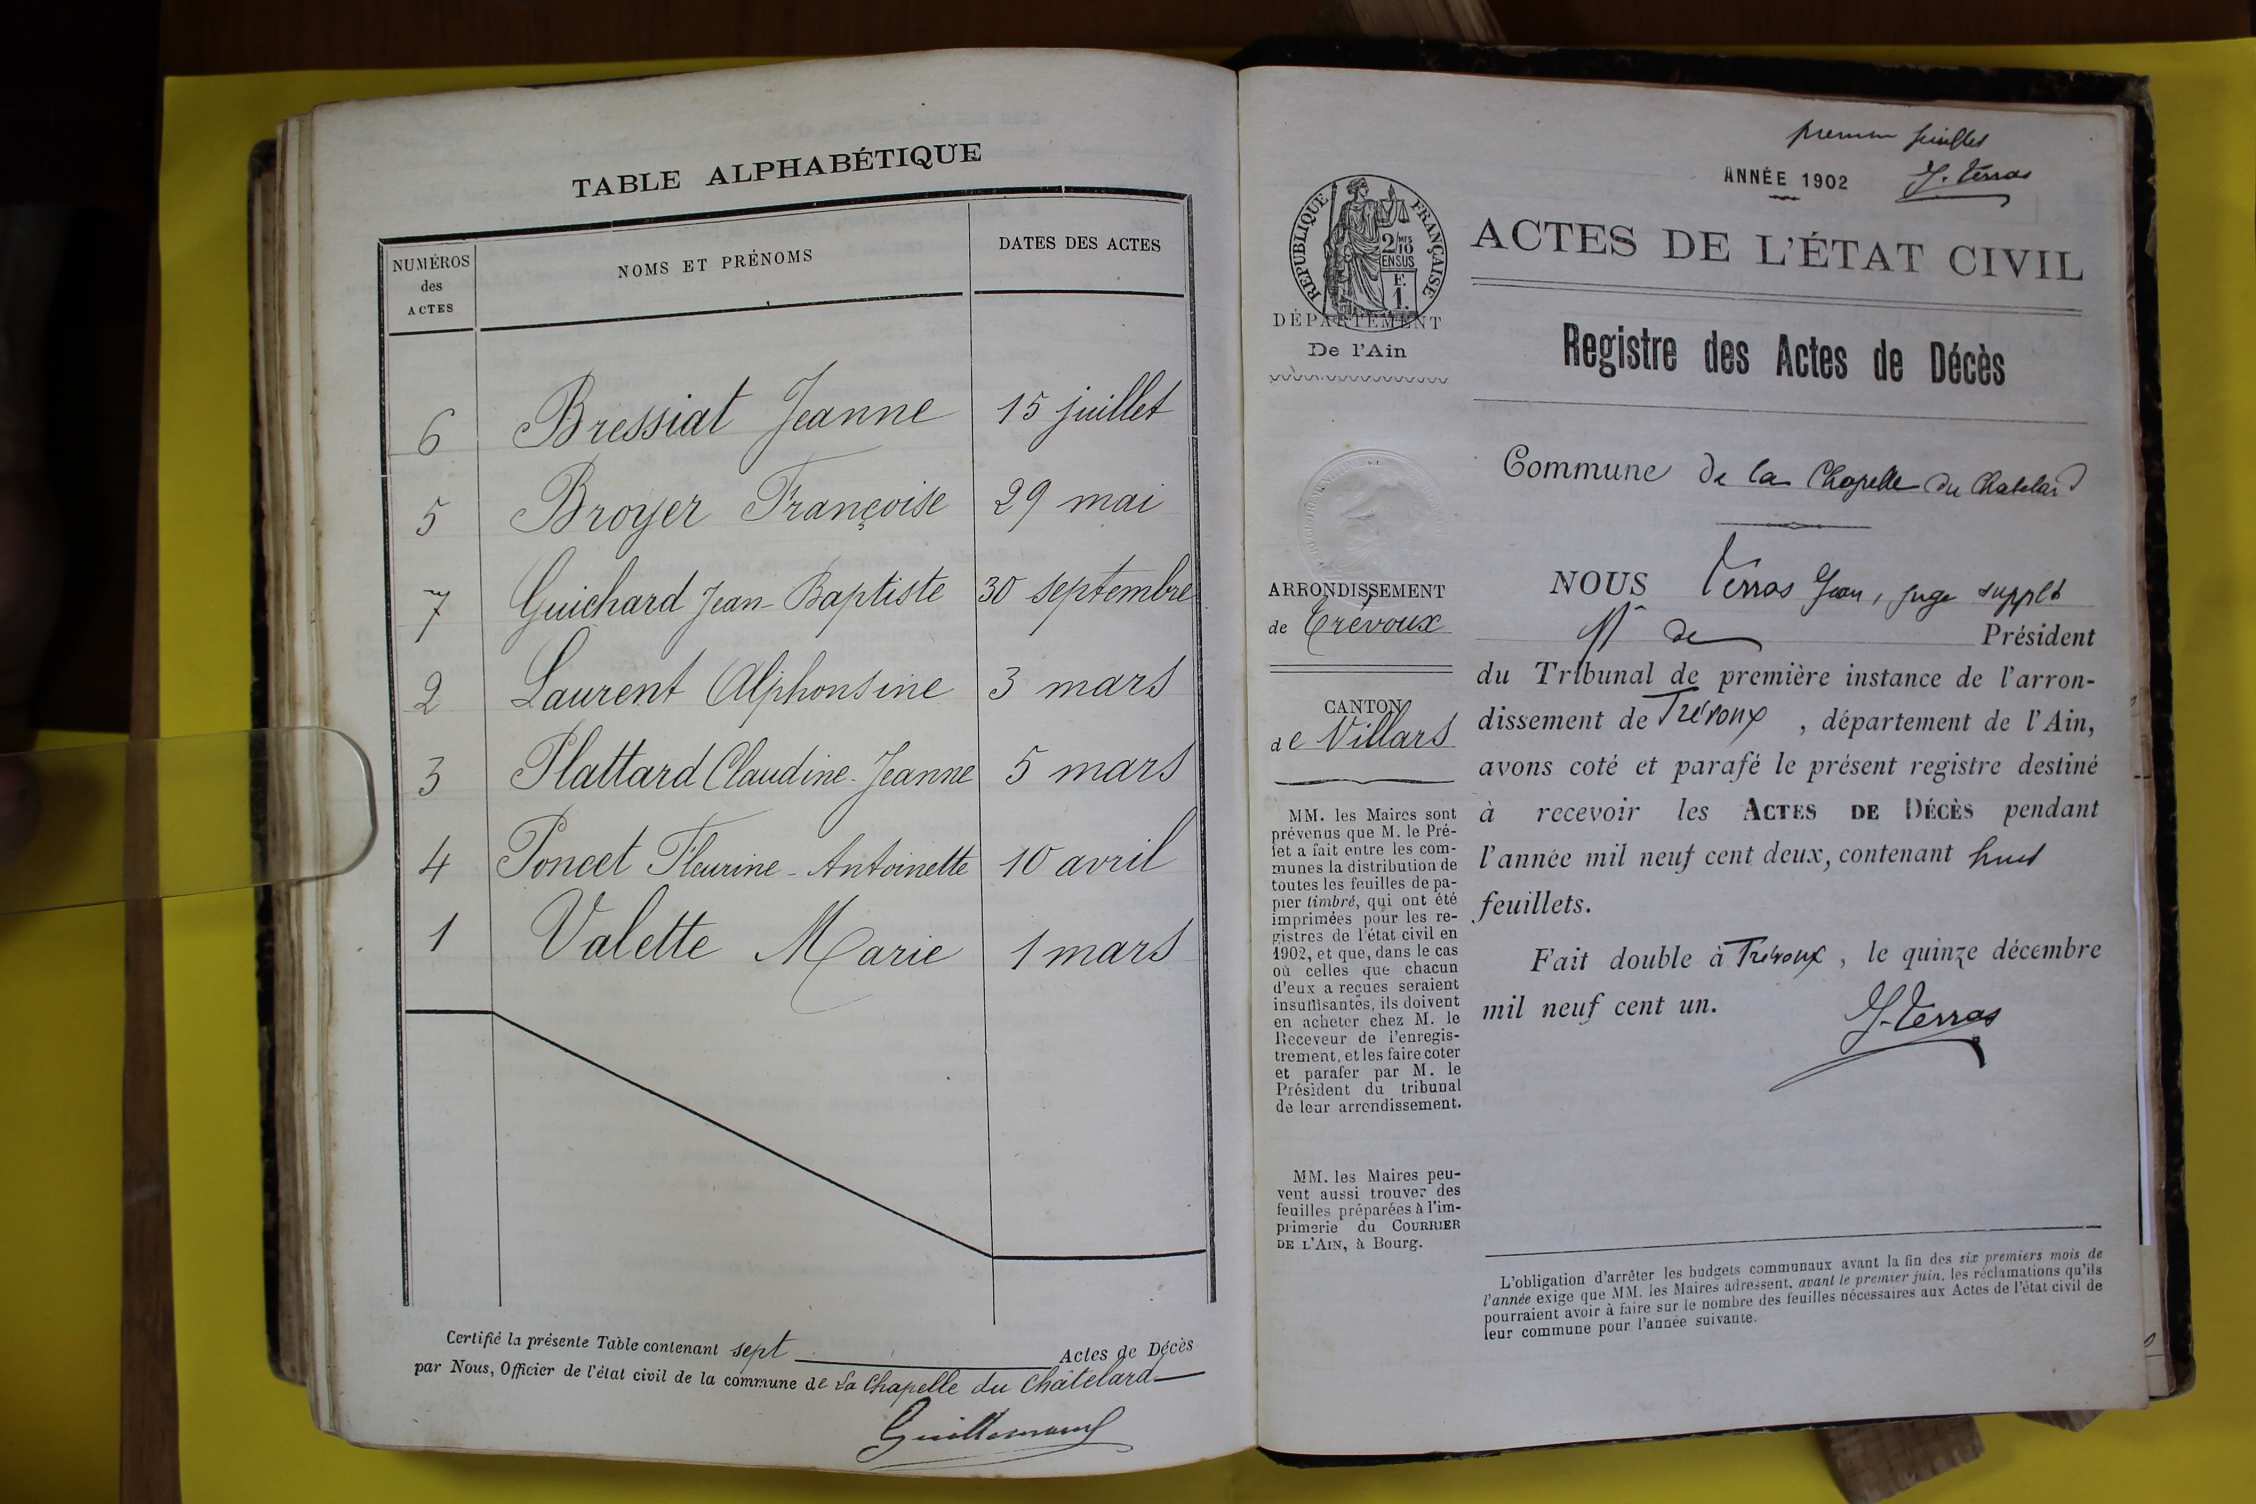 TABLE ALPHABÉTIQUE
NUMÉROS des ACTES NOMS ET PRÉNOMS DATES DES ACTES
6 Bressiat Jeanne 15 juillet
5 Broyer Françoise 29 mai
7 Guichard Jean-Baptiste 30 septembre
2 Laurent Alphonsine 3 mars
3 Plattard Claudine-Jeanne 5 mars
4 Poncet Fleurine-Antoinette 10 avril
1 Valette Marie 1 mars
Certifié la présente Table contenant sept Actes de Décès
par Nous, Officier de l'état civil de la commune de La Chapelle du Châtelard
premier feuillet
ANNÉE 1902 J. Terras
RÉPUBLIQUE FRANÇAISE
2/10 EN SUS
E. 1.
DÉPARTEMENT
De l'Ain
ARRONDISSEMENT
de Trévoux
CANTON
de Villars
MM. les Maires sont
prévenus que M. le Pré-
fet a fait entre les com-
munes la distribution de
toutes les feuilles de pa-
pier timbré, qui ont été
imprimées pour les re-
gistres de l'état civil en
1902, et que, dans le cas
où celles que chacun
d'eux a reçues seraient
insuffisantes, ils doivent
en acheter chez M. le
Receveur de l'enregis-
trement, et les faire coter
et parafer par M. le
Président du tribunal
de leur arrondissement.
MM. les Maires peu-
vent aussi trouver des
feuilles préparées à l'im-
primerie du COURRIER
DE L'AIN, à Bourg.
ACTES DE L'ÉTAT CIVIL
Registre des Actes de Décès
Commune de la Chapelle du Chatelard
NOUS Terras Jean, juge supplt
de Président
du Tribunal de première instance de l'arron-
dissement de Trévoux, département de l'Ain,
avons coté et parafé le présent registre destiné
à recevoir les ACTES DE DÉCÈS pendant
l'année mil neuf cent deux, contenant huit
feuillets.
Fait double à Trévoux, le quinze décembre
mil neuf cent un.
J. Terras
L'obligation d'arrêter les budgets communaux avant la fin des six premiers mois de
l'année exige que MM. les Maires adressent, avant le premier juin, les réclamations qu'ils
pourraient avoir à faire sur le nombre des feuilles nécessaires aux Actes de l'état civil de
leur commune pour l'année suivante.